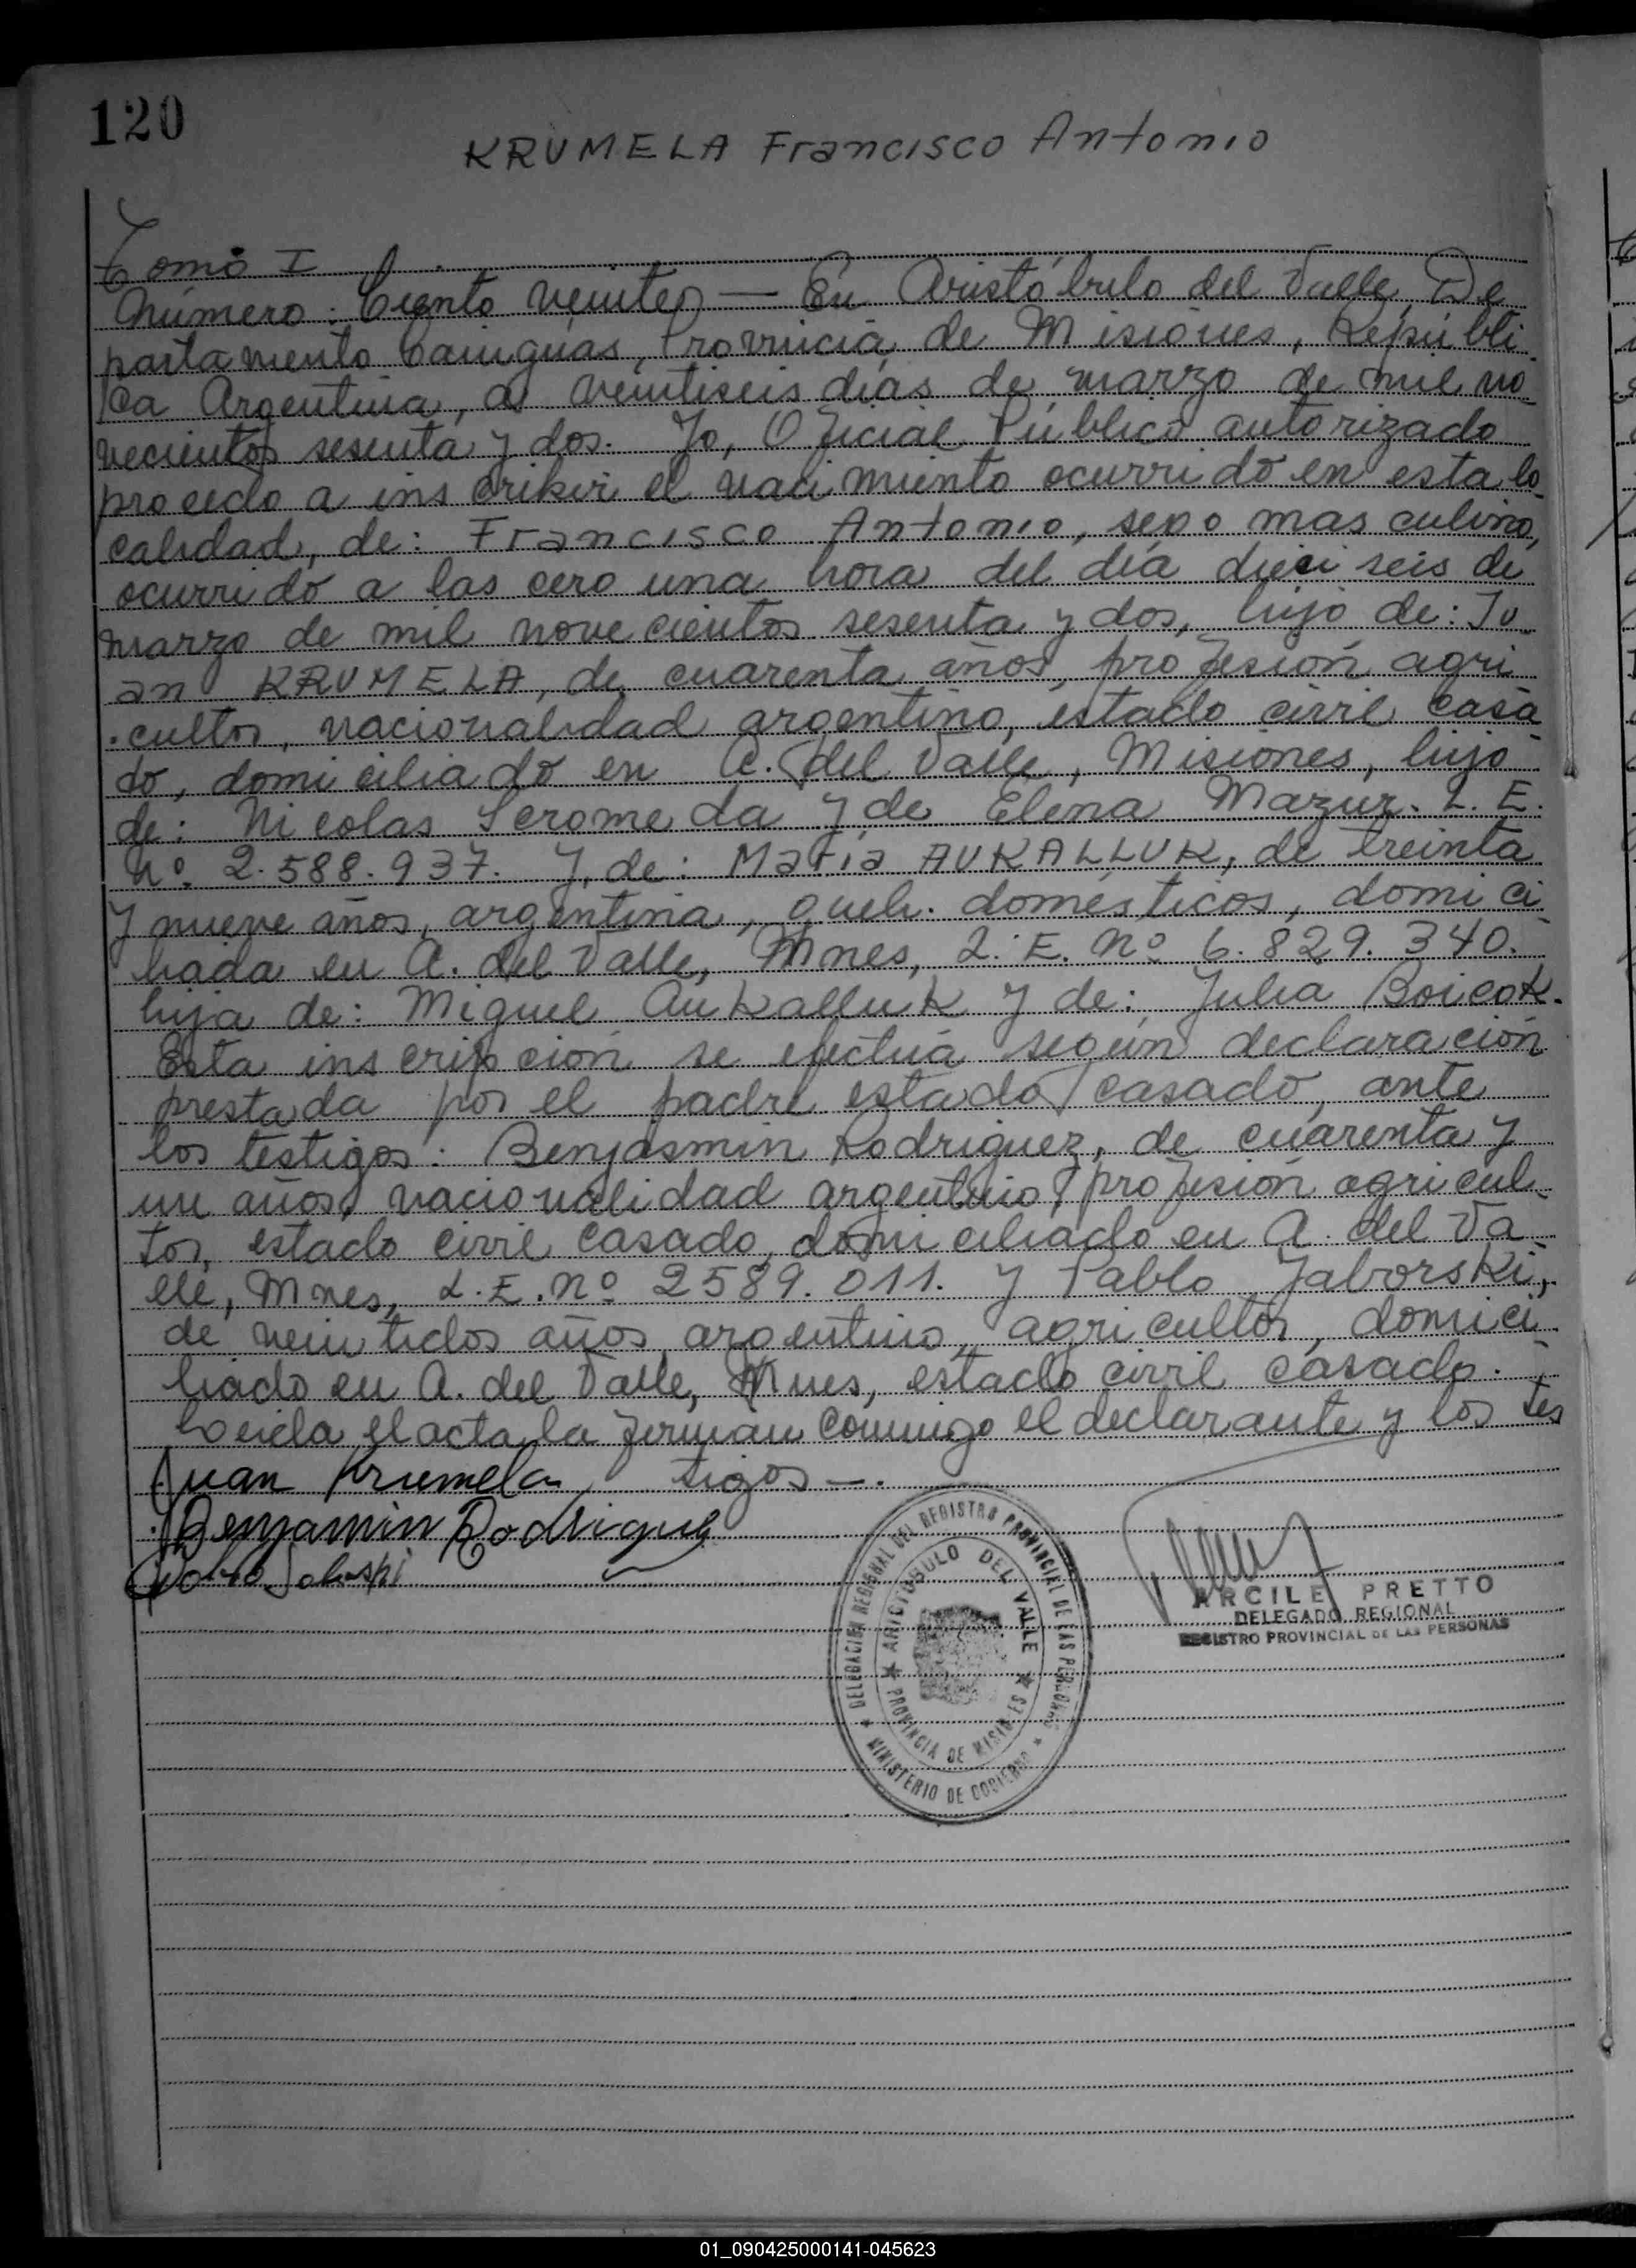 120
KRUMELA Francisco Antonio
Tomo I
Número: Ciento veinte — En Aristóbulo del Valle, De
partamento Cainguás, Provincia de Misiones, Repúbli
ca Argentina, a veintiseis días de marzo de mil no
vecientos sesenta y dos. Yo, Oficial Público autorizado
procedo a inscribir el nacimiento ocurrido en esta lo
calidad, de: Francisco Antonio, sexo masculino,
ocurrido a las cero una hora del día dieci seis de
marzo de mil novecientos sesenta y dos, hijo de: Ju
an KRUMELA, de cuarenta años, profesión agri
cultor, nacionalidad argentino, estado civil casa
do, domiciliado en A. del Valle, Misiones, hijo
de: Nicolas Seromeda y de Elena Mazur. L. E.
Nº. 2.588.937. Y, de: María AUKALLUK, de treinta
y nueve años, argentina, queh. domésticos, domici
liada en A. del Valle, Mnes, L. E. Nº 6.829.340.
hija de: Miguel Aukalluk y de: Julia Boicok.
Esta inscripción se efectúa según declaración
prestada por el padre estado casado, ante
los testigos: Benjasmin Rodriguez, de cuarenta y
un años, nacionalidad argentino, profesión agricul
tor, estado civil casado, domiciliado en A. del Va
lle, Mnes, L. E. Nº 2589.011. y Pablo Jaborski,
de veintidos años, argentino, agricultor, domici
liado en A. del Valle, Mnes, estado civil casado.
Leida el acta la firman conmigo el declarante y los tes
tigos —.
Juan Krumela
Benjamin Rodriguez
DELEGACION REGIONAL DEL REGISTRO PROVINCIAL DE LAS PERSONAS
MINISTERIO DE GOBIERNO
ARICTOBULO DEL VALLE
PROVINCIA DE MISIONES
ARCILE PRETTO
DELEGADO REGIONAL
REGISTRO PROVINCIAL DE LAS PERSONAS
01_090425000141-045623